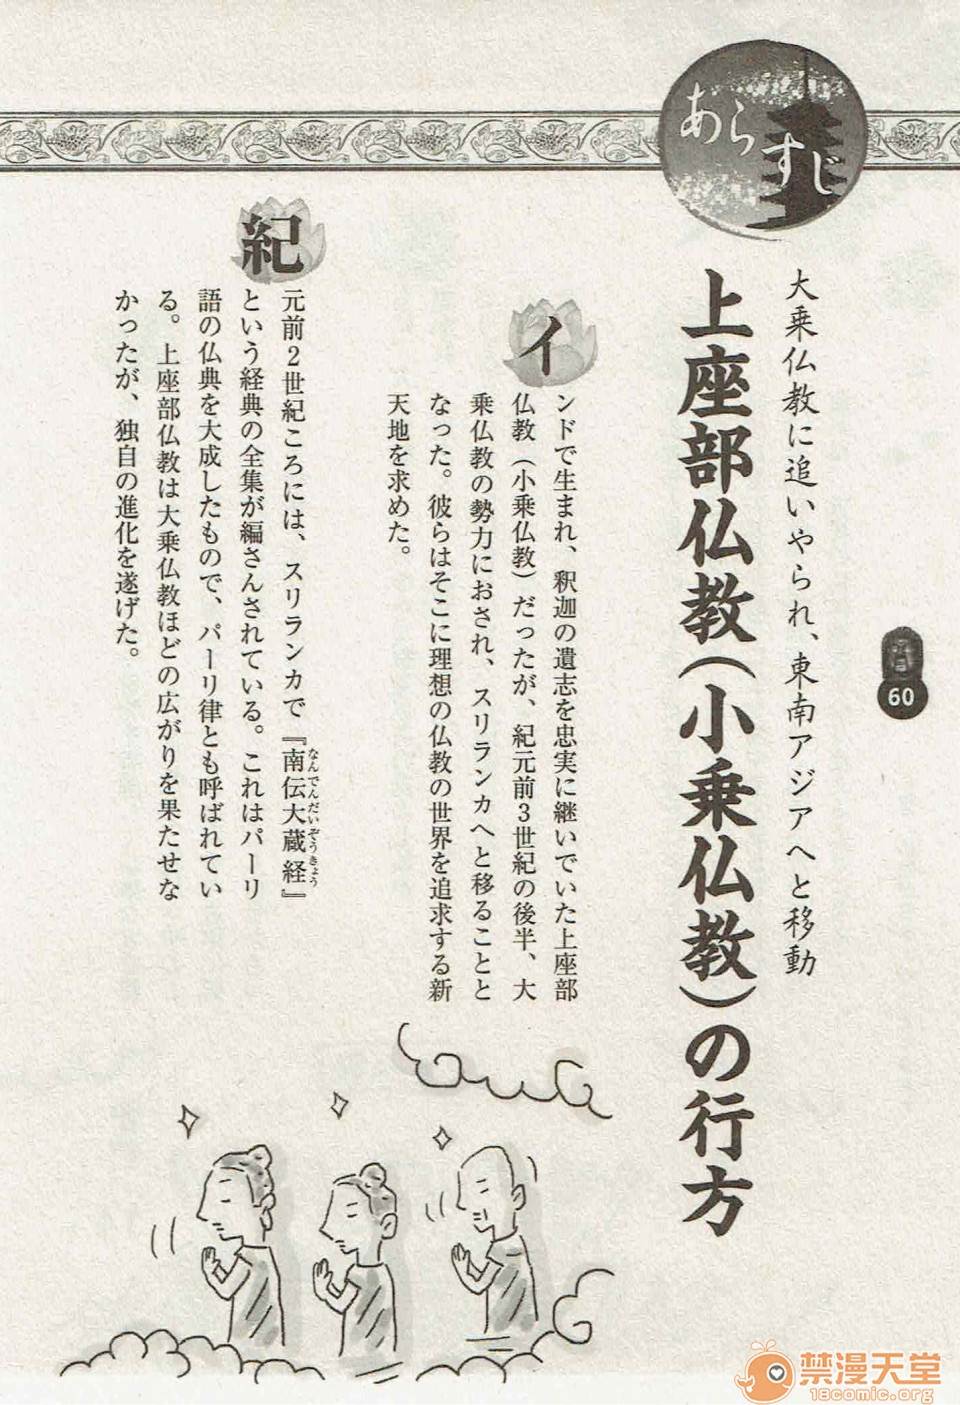 あらすじ
大乗仏教に追いやられ、東南アジアへと移動
上座部仏教(小乗仏教)の行方
60
インドで生まれ、釈迦の遺志を忠実に継いでいた上座部
仏教（小乗仏教）だったが、紀元前3世紀の後半、大
乗仏教の勢力におされ、スリランカへと移ることと
なった。彼らはそこに理想の仏教の世界を追求する新
天地を求めた。
紀元前2世紀ころには、スリランカで『南伝大蔵経』
なんでんだいぞうきょう
という経典の全集が編さんされている。これはパーリ
語の仏典を大成したもので、パーリ律とも呼ばれてい
る。上座部仏教は大乗仏教ほどの広がりを果たせな
かったが、独自の進化を遂げた。
禁漫天堂
18comic.org